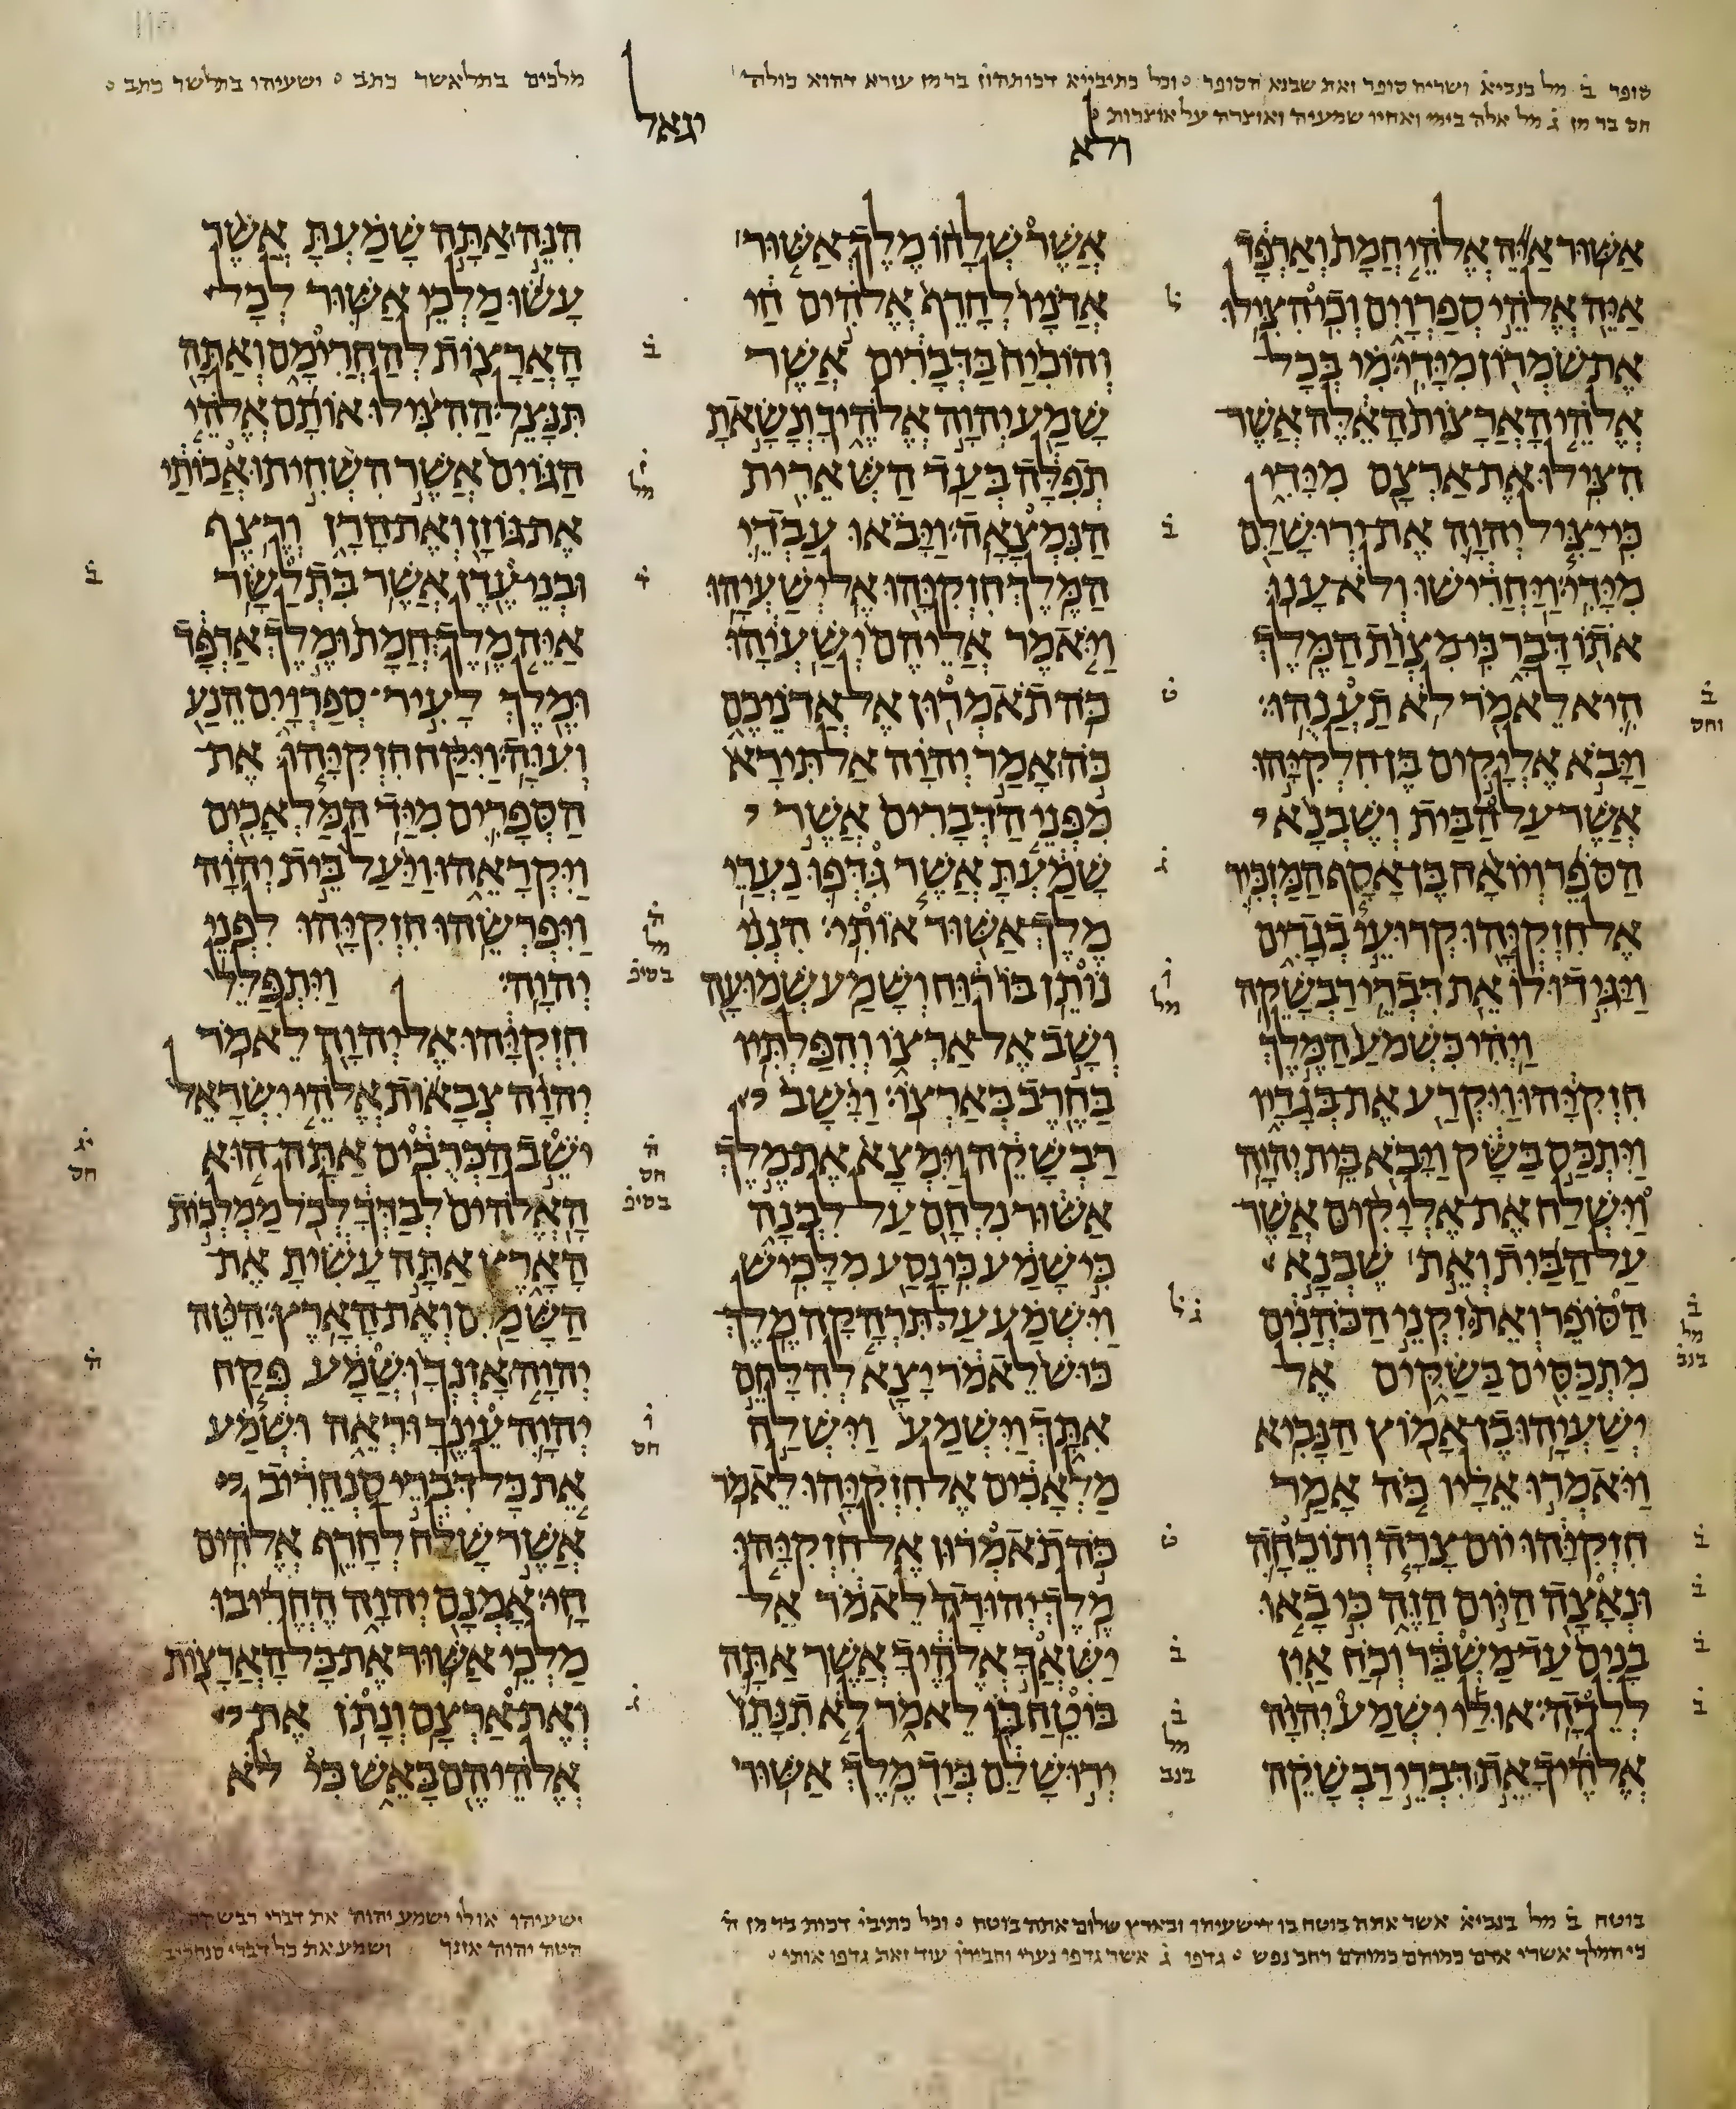 סופר ב֗ מל בנביא ושריה סופר ואת שבנא הסופר ׄ וכל כתיביא דכותהון בר מן עזרא דהוא כולה
חס בר מן ג֗ מל אלה בימי ואחיו שמעיה ואוצרה על אוצרות ׄ
מלכים בתלאשר כתב ׄ ישעיהו בתלשר כתב ׄ
יגאל
ולא
אַשּׁוּר אַיֵּה אֱלֹהֵי חֲמָת וְאַרְפָּד
אַיֵּה אֱלֹהֵי סְפַרְוָיִם וְכִי הִצִּילוּ
אֶת שֹׁמְרוֹן מִיָּדִי׃ מִי בְּכָל
אֱלֹהֵי הָאֲרָצוֹת הָאֵלֶּה אֲשֶׁר
הִצִּילוּ אֶת אַרְצָם מִיָּדִי
כִּי יַצִּיל יְהוָה אֶת יְרוּשָׁלַ͏ִם
מִיָּדִי׃ וַיַּחֲרִישׁוּ וְלֹא עָנוּ
אֹתוֹ דָּבָר כִּי מִצְוַת הַמֶּלֶךְ
הִיא לֵאמֹר לֹא תַעֲנֻהוּ׃
וַיָּבֹא אֶלְיָקִים בֶּן חִלְקִיָּהוּ
אֲשֶׁר עַל הַבַּיִת וְשֶׁבְנָא
הַסֹּפֵר וְיוֹאָח בֶּן אָסָף הַמַּזְכִּיר
אֶל חִזְקִיָּהוּ קְרוּעֵי בְגָדִים
וַיַּגִּידוּ לוֹ אֵת דִּבְרֵי רַבְשָׁקֵה׃
וַיְהִי כִּשְׁמֹעַ הַמֶּלֶךְ
חִזְקִיָּהוּ וַיִּקְרַע אֶת בְּגָדָיו
וַיִּתְכַּס בַּשָּׂק וַיָּבֹא בֵּית יְהוָה׃
וַיִּשְׁלַח אֶת אֶלְיָקִים אֲשֶׁר
עַל הַבַּיִת וְאֵת שֶׁבְנָא
הַסּוֹפֵר וְאֵת זִקְנֵי הַכֹּהֲנִים
מִתְכַּסִּים בַּשַּׂקִּים אֶל
יְשַׁעְיָהוּ בֶן אָמוֹץ הַנָּבִיא׃
וַיֹּאמְרוּ אֵלָיו כֹּה אָמַר
חִזְקִיָּהוּ יוֹם צָרָה וְתוֹכֵחָה
וּנְאָצָה הַיּוֹם הַזֶּה כִּי בָאוּ
בָנִים עַד מַשְׁבֵּר וְכֹחַ אַיִן
לְלֵדָה׃ אוּלַי יִשְׁמַע יְהוָה
אֱלֹהֶיךָ אֵת דִּבְרֵי רַבְשָׁקֵה
אֲשֶׁר שְׁלָחוֹ מֶלֶךְ אַשּׁוּר
אֲדֹנָיו לְחָרֵף אֱלֹהִים חַי
וְהוֹכִיחַ בַּדְּבָרִים אֲשֶׁר
שָׁמַע יְהוָה אֱלֹהֶיךָ וְנָשָׂאתָ
תְפִלָּה בְּעַד הַשְּׁאֵרִית
הַנִּמְצָאָה׃ וַיָּבֹאוּ עַבְדֵי
הַמֶּלֶךְ חִזְקִיָּהוּ אֶל יְשַׁעְיָהוּ׃
וַיֹּאמֶר אֲלֵיהֶם יְשַׁעְיָהוּ
כֹּה תֹאמְרוּן אֶל אֲדֹנֵיכֶם
כֹּה אָמַר יְהוָה אַל תִּירָא
מִפְּנֵי הַדְּבָרִים אֲשֶׁר
שָׁמַעְתָּ אֲשֶׁר גִּדְּפוּ נַעֲרֵי
מֶלֶךְ אַשּׁוּר אוֹתִי׃ הִנְנִי
נוֹתֵן בּוֹ רוּחַ וְשָׁמַע שְׁמוּעָה
וְשָׁב אֶל אַרְצוֹ וְהִפַּלְתִּיו
בַּחֶרֶב בְּאַרְצוֹ׃ וַיָּשָׁב
רַבְשָׁקֵה וַיִּמְצָא אֶת מֶלֶךְ
אַשּׁוּר נִלְחָם עַל לִבְנָה
כִּי שָׁמַע כִּי נָסַע מִלָּכִישׁ׃
וַיִּשְׁמַע עַל תִּרְהָקָה מֶלֶךְ
כּוּשׁ לֵאמֹר יָצָא לְהִלָּחֵם
אִתָּךְ וַיִּשְׁמַע וַיִּשְׁלַח
מַלְאָכִים אֶל חִזְקִיָּהוּ לֵאמֹר׃
כֹּה תֹאמְרוּן אֶל חִזְקִיָּהוּ
מֶלֶךְ יְהוּדָה לֵאמֹר אַל
יַשִּׁאֲךָ אֱלֹהֶיךָ אֲשֶׁר אַתָּה
בּוֹטֵחַ בּוֹ לֵאמֹר לֹא תִנָּתֵן
יְרוּשָׁלַ͏ִם בְּיַד מֶלֶךְ אַשּׁוּר׃
הִנֵּה אַתָּה שָׁמַעְתָּ אֲשֶׁר
עָשׂוּ מַלְכֵי אַשּׁוּר לְכָל
הָאֲרָצוֹת לְהַחֲרִימָם וְאַתָּה
תִּנָּצֵל׃ הַהִצִּילוּ אוֹתָם אֱלֹהֵי
הַגּוֹיִם אֲשֶׁר הִשְׁחִיתוּ אֲבוֹתַי
אֶת גּוֹזָן וְאֶת חָרָן וְרֶצֶף
וּבְנֵי עֶדֶן אֲשֶׁר בִּתְלַשָּׂר׃
אַיֵּה מֶלֶךְ חֲמָת וּמֶלֶךְ אַרְפָּד
וּמֶלֶךְ לָעִיר סְפַרְוָיִם הֵנַע
וְעִוָּה׃ וַיִּקַּח חִזְקִיָּהוּ אֶת
הַסְּפָרִים מִיַּד הַמַּלְאָכִים
וַיִּקְרָאֵהוּ וַיַּעַל בֵּית יְהוָה
וַיִּפְרְשֵׂהוּ חִזְקִיָּהוּ לִפְנֵי
יְהוָה׃ וַיִּתְפַּלֵּל
חִזְקִיָּהוּ אֶל יְהוָה לֵאמֹר׃
יְהוָה צְבָאוֹת אֱלֹהֵי יִשְׂרָאֵל
יֹשֵׁב הַכְּרֻבִים אַתָּה הוּא
הָאֱלֹהִים לְבַדְּךָ לְכֹל מַמְלְכוֹת
הָאָרֶץ אַתָּה עָשִׂיתָ אֶת
הַשָּׁמַיִם וְאֶת הָאָרֶץ׃ הַטֵּה
יְהוָה אָזְנְךָ וּשֲׁמָע פְּקַח
יְהוָה עֵינֶךָ וּרְאֵה וּשְׁמַע
אֵת כָּל דִּבְרֵי סַנְחֵרִיב
אֲשֶׁר שָׁלַח לְחָרֵף אֱלֹהִים
חָי׃ אָמְנָם יְהוָה הֶחֱרִיבוּ
מַלְכֵי אַשּׁוּר אֶת כָּל הָאֲרָצוֹת
וְאֶת אַרְצָם׃ וְנָתֹן אֶת
אֱלֹהֵיהֶם בָּאֵשׁ כִּי לֹא
בוטח ב֗ מל בנביא אשר אתה בוטח בו דישעיהו ובארץ שלום אתה בוטח ׄ וכל כתיבי דכות בר מן ה֗
כי המלך אשרי אדם במוהם כמוהם רחב נפש ׄ גדפו ג֗ אשר גדפו נערי וחבירו עוד זאת גדפו אותי ׄ
ישעיהו אולי ישמע יהוה את דברי רבשקה
הטה יהוה אזנך ושמע את כל דברי סנחריב